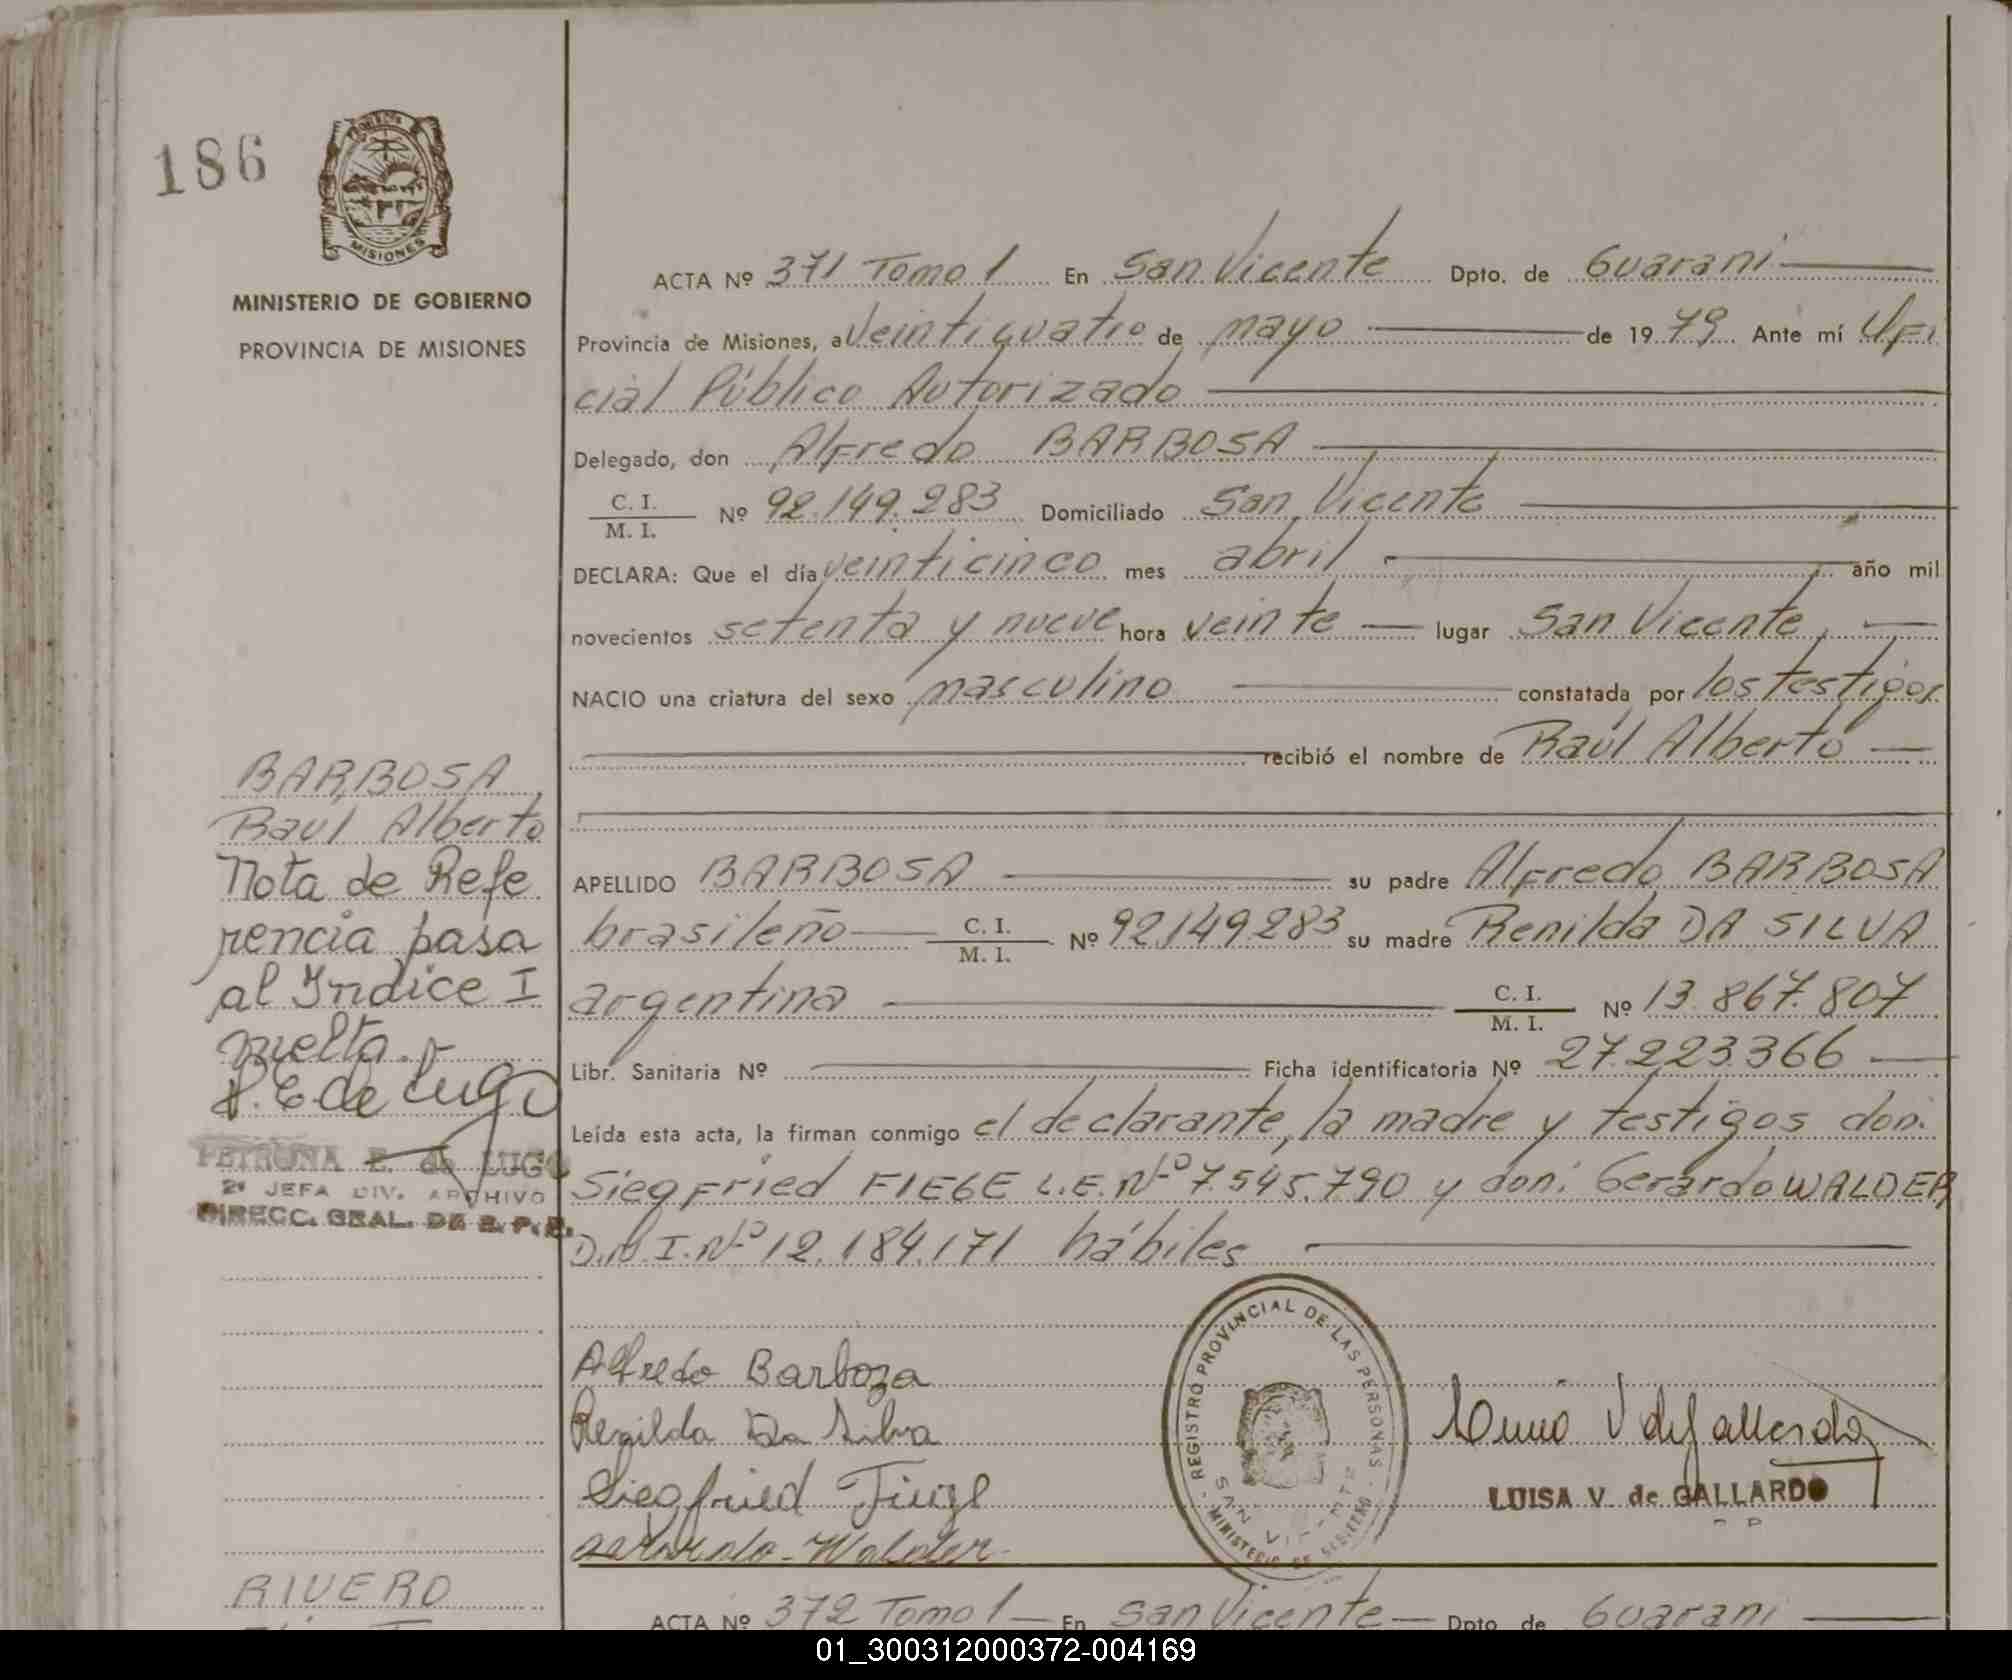 186
MISIONES
MINISTERIO DE GOBIERNO
PROVINCIA DE MISIONES
ACTA Nº 371 Tomo 1 En San Vicente Dpto. de Guaraní
Provincia de Misiones, a Veinticuatro de mayo de 1979. Ante mí Ofi
cial Público Autorizado
Delegado, don Alfredo BARBOSA
C. I.
M. I. Nº 92.149.283 Domiciliado San Vicente
DECLARA: Que el día veinticinco mes abril año mil
novecientos setenta y nueve hora veinte lugar San Vicente,
NACIO una criatura del sexo masculino constatada por los testigos
recibió el nombre de Raúl Alberto
BARBOSA
Raul Alberto
Nota de Refe
rencia pasa
al Indice I
vuelta.
P. E. de Lugo
PETRONA E. de LUGO
2ª JEFA DIV. ARCHIVO
DIRECC. GRAL. DE R. P. P.
APELLIDO BARBOSA su padre Alfredo BARBOSA
brasileño C. I. M. I. Nº 92.149.283 su madre Renilda DA SILVA
argentina C. I. M. I. Nº 13.867.807
Libr. Sanitaria Nº Ficha identificatoria Nº 27.223.366
Leída esta acta, la firman conmigo el declarante, la madre y testigos don:
Siegfried FIEGE L.E. Nº 7.545.790 y don: Gerardo WALDER
D.N.I. Nº 12.184.171 hábiles
Alfredo Barboza
Renilda Da Silva
Siegfried Fiege
Gerardo Walder
REGISTRO PROVINCIAL DE LAS PERSONAS
SAN VICENTE
MINISTERIO DE GOBIERNO
Luisa V de Gallardo
LUISA V. de GALLARDO
RIVERO
ACTA Nº 372 Tomo 1 En San Vicente Dpto de Guaraní
01_300312000372-004169